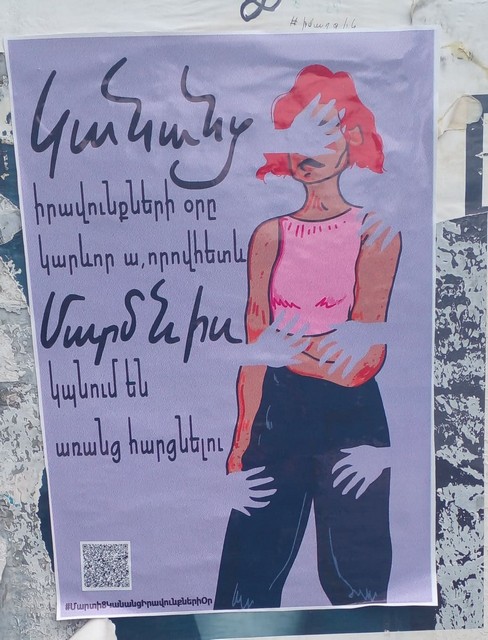 Կանանց
իրավունքների օրը
կարևոր ա, որովհետև
Մարմնիս
կպնում են
առանց հարցնելու
#Մարտի8ԿանանցԻրավունքներիՕր